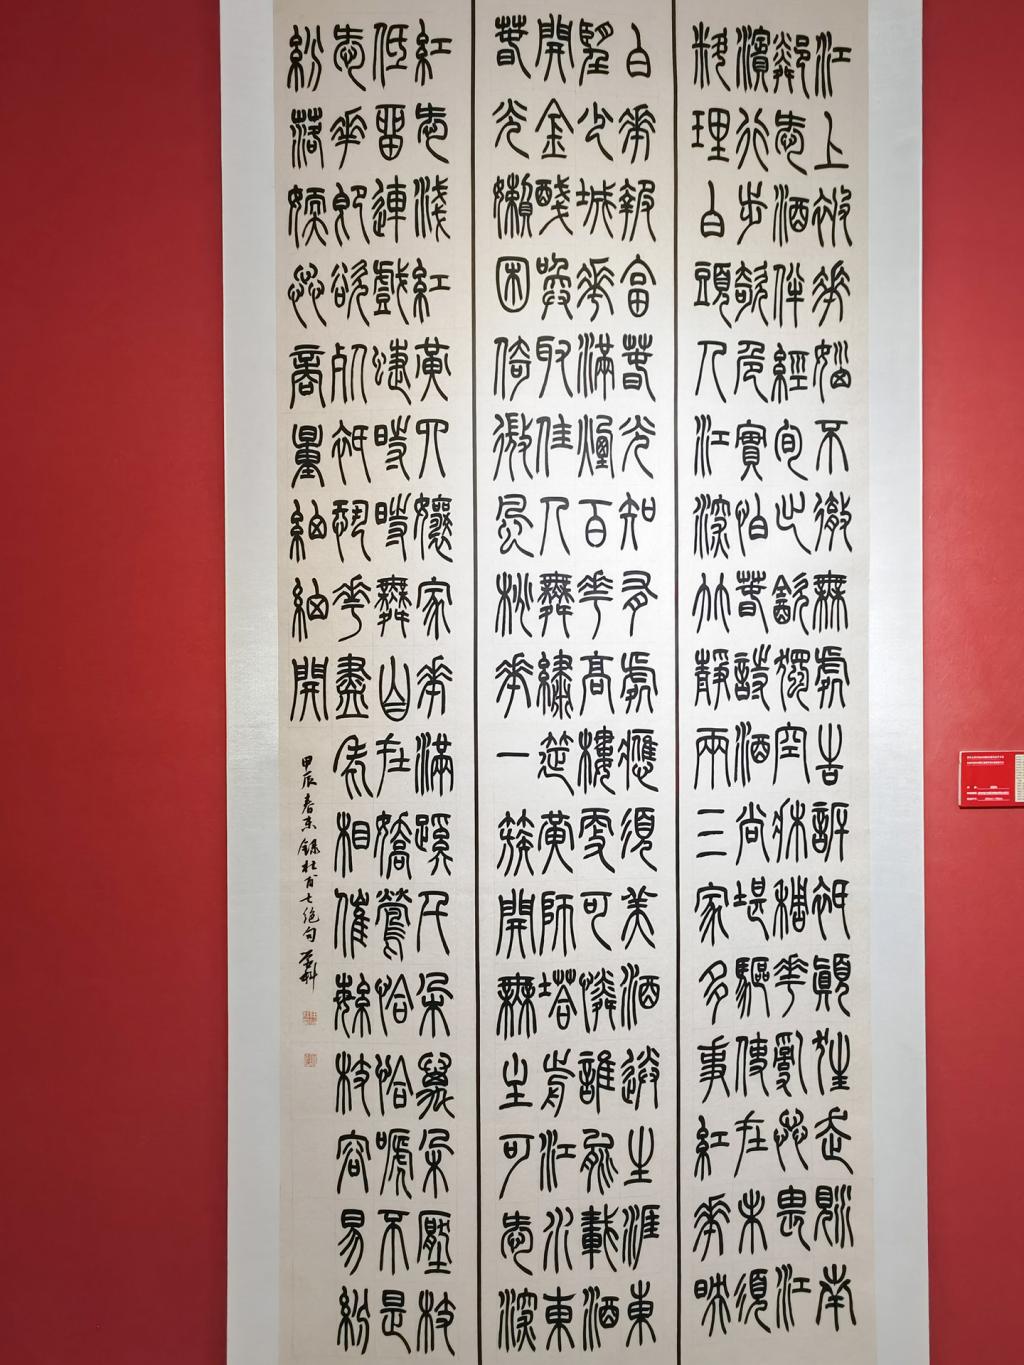 江上被花惱不徹無處告訴祇顛狂走覓南
鄰愛酒伴經旬出飲獨空牀稠花亂蕊畏江
濱行步欹危實怕春詩酒尚堪驅使在未須
料理白頭人江深竹靜兩三家多事紅花映
白花報答春光知有處應須美酒送生涯東
望少城花滿煙百花高樓更可憐誰能載酒
開金盞喚取佳人舞繡筵黃師塔前江水東
春光懶困倚微風桃花一簇開無主可愛深
紅愛淺紅黃四孃家花滿蹊千朵萬朵壓枝
低留連戲蝶時時舞自在嬌鶯恰恰嗁不是
愛花即欲死祇恐花盡老相催繁枝容易紛
紛落嫩蕊商量細細開
甲辰春末錄杜甫七絕句